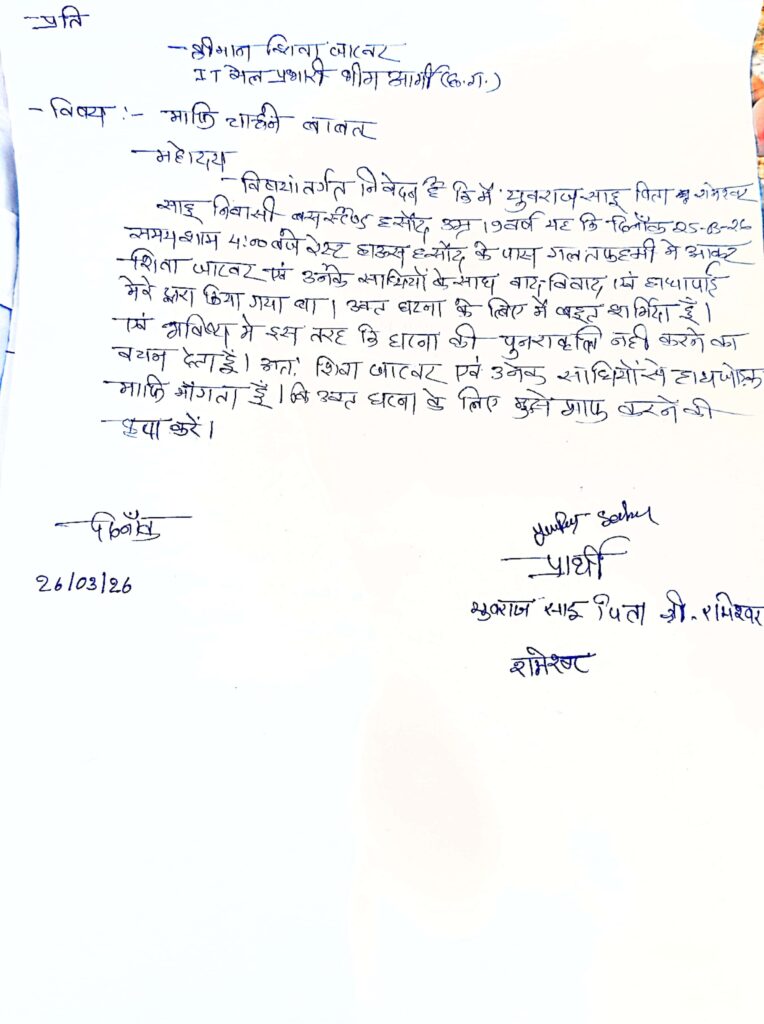 प्रति
- श्रीमान शिवा जाटवर
IT सेल प्रभारी भीम आर्मी (छ.ग.)
- विषय :- माफि चाहने बाबत
- महोदय
- विषयांतर्गत निवेदन है कि मैं युवराज साहू पिता रामेश्वर
साहू निवासी बसस्टैण्ड हसौद उम्र 19 वर्ष यह कि दिनाँक 25-03-26
समय शाम 4:00 बजे रेस्ट हाऊस हसौद के पास गलतफहमी मे आकर
शिवा जाटवर एवं उनके साथियों के साथ वाद-विवाद एवं हाथापाई
मेरे द्वारा किया गया था। उक्त घटना के लिए मैं बहुत शर्मिंदा हूँ।
एवं भविष्य मे इस तरह कि घटना की पुनरावृत्ति नही करने का
वचन देता हूँ। अतः शिवा जाटवर एवं उनके साथियों से हाथजोड़कर
माफि माँगता हूँ। कि उक्त घटना के लिए मुझे माफ करने की
कृपा करें।
दिनाँक
26/03/26
Yuvraj Sahu
प्रार्थी
युवराज साहू पिता श्री. रामेश्वर
रामेश्वर